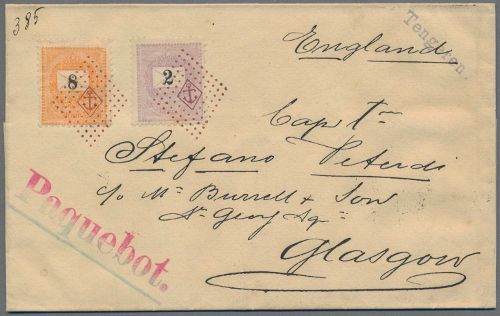 385
8
2
Tengeren.
England
Cap Tn
Stefano Peterdi
c/o Mc Burrell & Son
St Georg Sq
Glasgow
Paquebot.